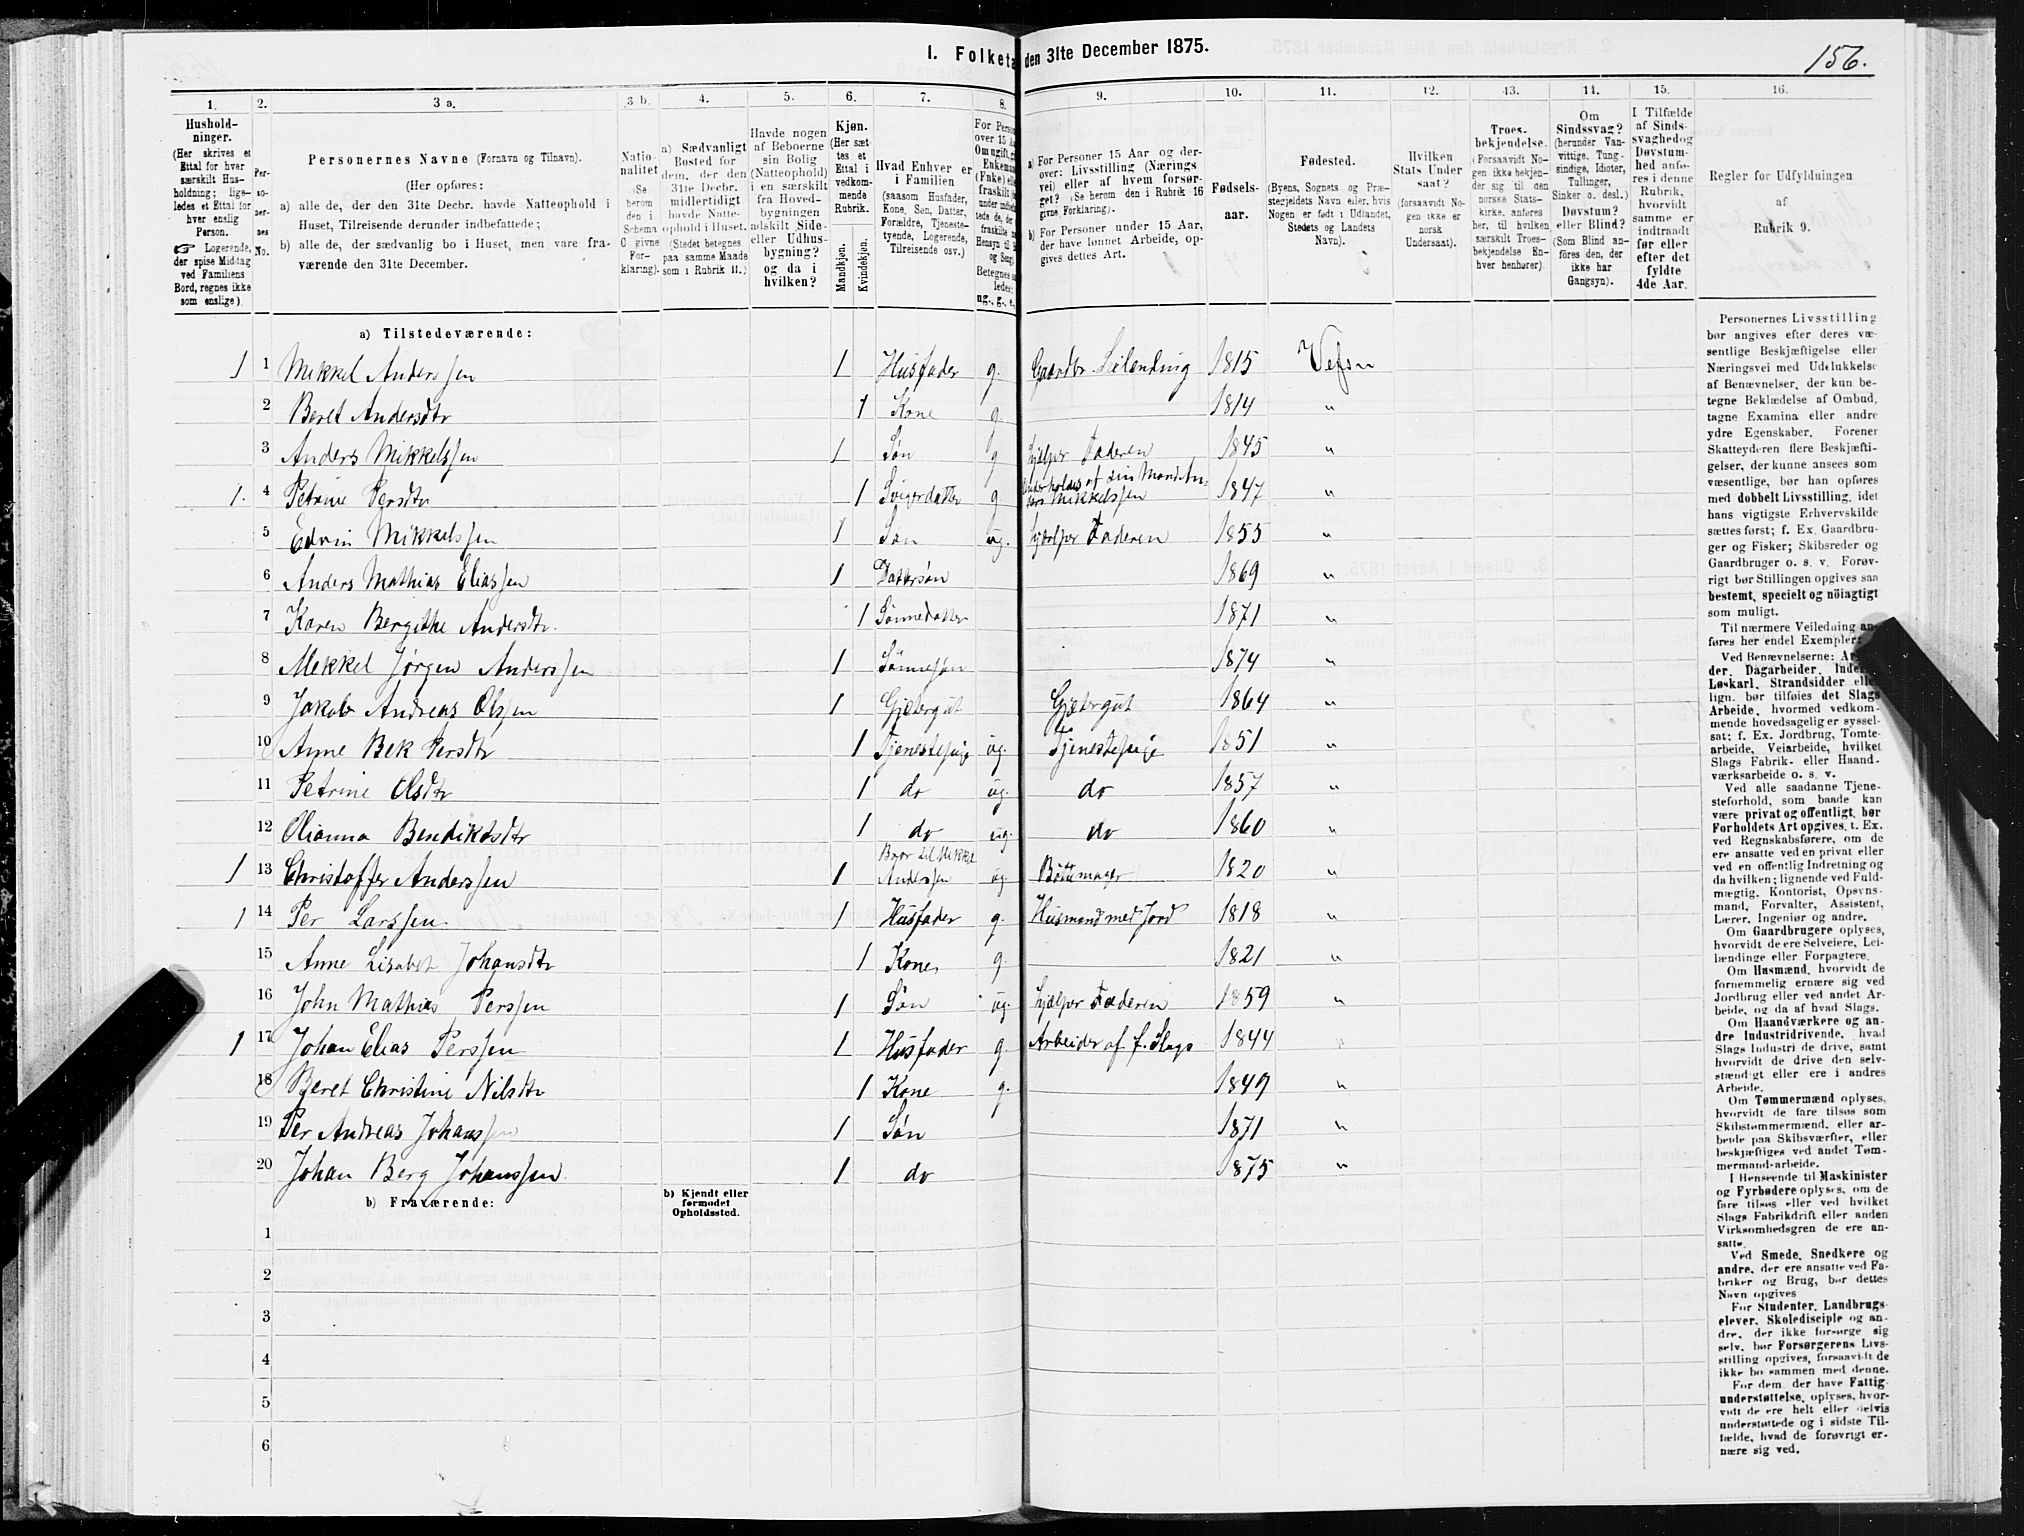 I. Folketæ
den 31te December 1875.
156.
1. 2. 3 a. 3 b. 4. 5. 6. 7. 8. 9. 10. 11. 12. 13. 14. 15. 16.
Hushold-
ninger.
(Her skrives et
Ettal for hver
særskilt Hus-
holdning; lige-
ledes et Ettal for
hver enslig
Person.
☞ Logerende,
der spise Middag
ved Familiens
Bord, regnes ikke
som enslige).
Per-
so-
ner-
nes
No.
Personernes Navne (Fornavn og Tilnavn).
(Her opføres:
a) alle de, der den 31te Decbr. havde Natteophold i
Huset, Tilreisende derunder indbefattede;
b) alle de, der sædvanlig bo i Huset, men vare fra-
værende den 31te December.
Natio-
nalitet
(Se
herom
den i
Schema
O givne
For-
klaring).
a) Sædvanligt
Bosted for
dem, der den
31te Decbr.
midlertidigt
havde Natte-
ophold i Huset.
(Stedet betegnes
paa samme Maade
som i Rubrik 11.)
Havde nogen
af Beboerne
sin Bolig
(Natteophold)
i en særskilt
fra Hoved-
bygningen
adskilt Side-
eller Udhus-
bygning?
og da i
hvilken?
Kjøn.
(Her sæt-
tes et
Ettal i
vedkom-
mende
Rubrik.
Mandkjøn.
Kvindekjøn.
Hvad Enhver er
i Familien
(saasom Husfader,
Kone, Søn, Datter,
Forældre, Tjeneste-
tyende, Logerende,
Tilreisende osv.)
For Person
over 15 Aar
Om ugift, g
Enkemand
(Enke) ell
fraskilt
a) For Personer 15 Aar og der-
over: Livsstilling (Nærings
vei) eller af hvem forsør-
get? (Se herom den i Rubrik 16
givne Forklaring).
b) For Personer under 15 Aar,
der have lønnet Arbeide, op-
gives dettes Art.
Fødsels-
aar.
Fødested.
(Byens, Sognets og Præ-
stegjeldets Navn eller, hvis
Nogen er født i Udlandet,
Stedets og Landets
Navn).
Hvilken
Stats Under
saat?
(forsaavidt No-
gen ikke er
norsk
Undersaat).
Troes-
bekjendelse.
(Forsaavidt No-
gen ikke beken-
der sig til den
norske Stats-
kirke, anføres
her, til hvilken
særskilt Troes-
bekjendelse En-
hver henhører).
Om
Sindssvag?
(herunder Van-
vittige, Tung-
sindige, Idioter,
Tullinger,
Sinker o. desl.)
Døvstum?
eller Blind?
(Som Blind an-
føres den, der
ikke har
Gangsyn).
I Tilfælde
af Sinds-
svaghed og
Døvstum-
hed anfø-
res i denne
Rubrik,
hvorvidt
samme er
indtraadt
før eller
efter det
fyldte
4de Aar.
Regler for Udfyldningen
af
Rubrik 9.
a) Tilstedeværende:
1 1 Mikkel Anderssen 1 Husfader g. Gaardbr Seilending 1815 Vefsn
2 Beret Andersdtr 1 Kone g. 1814 "
3 Anders Mikkelssen 1 Søn g hjælper Faderen 1845 "
1. 4 Petrine Persdtr 1 Svigerdatter g Underholdes af sin Mand An-
ders Mikkelssen 1847 "
5 Edvin Mikkelssen 1 Søn ug. hjælper Faderen 1855 "
6 Anders Mathias Eliassen 1 Dattersøn 1869 "
7 Karen Bergithe Andersdtr. 1 Sønnedatter 1871 "
8 Mikkel Jørgen Anderssen 1 Sønnesøn 1874 "
9 Jakob Andreas Olssen 1 Gjætergut Gjætergut 1864 "
10 Anne Bek Persdtr 1 Tjenestepige ug. Tjenestepige 1851 "
11 Petrine Olsdtr 1 do ug. do 1857 "
12 Olianna Bendiktsdtr 1 do ug. do 1860 "
1 13 Christoffer Anderssen 1 Bror til Mikkel
Anderssen ug Bødtmager 1820 "
1 14 Per Larssen 1 Husfader g. Husmand med Jord 1818 "
15 Anne Lisabet Johansdtr 1 Kone g. 1821 "
16 John Mathias Perssen 1 Søn ug. hjælper Faderen 1859 "
1 17 Johan Elias Perssen 1 Husfader g. Arbeider af f. Slags 1844 "
18 Beret Christine Nilsdtr 1 Kone g. 1849 "
19 Per Andreas Johanssen 1 Søn 1871 "
20 Johan Berg Johanssen 1 do 1875 "
b) Fraværende:
b) Kjendt eller
formodet
Opholdssted.
1
2
3
4
5
6
Personernes Livsstilling
bør angives efter deres væ-
sentlige Beskjæftigelse eller
Næringsvei med Udelukkelse
af Benævnelser, der kun be-
tegne Beklædelse af Ombud,
tagne Examina eller andre
ydre Egenskaber. Forener
Skatteyderen flere Beskjæfti-
gelser, der kunne ansees som
væsentlige, bør han opføres
med dobbelt Livsstilling, idet
hans vigtigste Erhvervskilde
sættes først; f. Ex. Gaardbru-
ger og Fisker; Skibsreder og
Gaardbruger o. s. v. Forøv-
rigt bør Stillingen opgives saa
bestemt, specielt og nöiagtigt
som muligt.
Til nærmere Veiledning an-
føres her endel Exempler:
Ved Benævnelserne: Ar
der, Dagarbeider, Inder
Løskarl, Strandsidder elle
lign. bør tilføies det Slags
Arbeide, hvormed vedkom-
mende hovedsagelig er syssel-
sat; f. Ex. Jordbrug, Tomte-
arbeide, Veiarbeide, hvilket
Slags Fabrik- eller Haand-
værksarbeide o. s. v.
Ved alle saadanne Tjene-
steforhold, som baade kan
være privat og offentligt, bør
Forholdets Art opgives, t. Ex.
ved Regnskabsførere, om de
ere ansatte ved en privat eller
ved en offentlig Indretning og
da hvilken; lignende ved Fuld-
mægtig, Kontorist, Opsyns-
mand, Forvalter, Assistent,
Lærer, Ingeniør og andre.
Om Gaardbrugere oplyses,
hvorvidt de ere Selveiere, Lei-
lændinge eller Forpagtere.
Om Husmænd, hvorvidt de
fornemmelig ernære sig ved
Jordbrug eller ved andet Ar-
beide, og da af hvad Slags.
Om Haandværkere og an-
dre Industridrivende, hvad
Slags Industri de drive, samt
hvorvidt de drive den selv-
stændigt eller ere i andres
Arbeide.
Om Tømmermænd oplyses,
hvorvidt de fare tilsøs som
Skibstømmermænd, eller ar-
beide paa Skibsværfter, eller
beskjæftiges ved andet Tøm-
mermand-arbeide.
I Henseende til Maskinister
og Fyrbødere oplyses, om de
fare tilsøs eller ved hvilket
Slags Fabrikdrift eller anden
Virksomhedsgren de ere an-
satte.
Ved Smede, Snedkere og
andre, der ere ansatte ved Fa-
briker og Brug, bør dettes
Navn opgives
For Studenter, Landbrugs-
elever, Skoledisciple og an-
dre, der ikke forsørge sig
selv, bør Forsørgerens Livs-
stilling opgives, forsaavidt de
ikke bo sammen med denne.
For dem, der have Fattig-
understøttelse, oplyses, hvor-
vidt de ere helt eller delvis
understøttede og i sidste Til-
fælde, hvad de forøvrigt er-
nære sig ved.